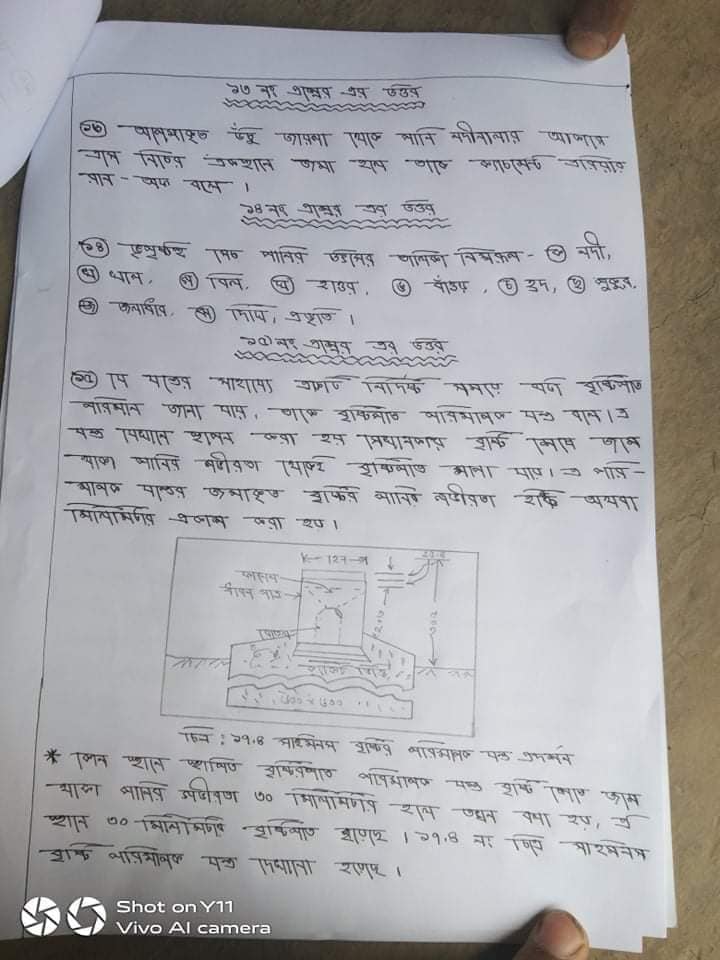 ১৩ নং প্রশ্নের এর উত্তর
১৩ আশেপাশের উঁচু জায়গা থেকে পানি নদীনালার আকারে
এসে নিচের একস্থানে জমা হলে তাকে ক্যাচমেন্ট এরিয়ার
রান-অফ বলে।
১৪ নং প্রশ্নের এর উত্তর
১৪ ভূপৃষ্ঠস্থ পানির উৎসের তালিকা নিম্নরূপ- ক নদী,
খ খাল, গ বিল, ঘ হাওর, ঙ বাঁওড়, চ হ্রদ, ছ পুকুর,
জ জলাধার, ঝ দিঘি, প্রভৃতি।
১৫ নং প্রশ্নের এর উত্তর
১৫ যে যন্ত্রের সাহায্যে একটি নির্দিষ্ট সময়ে বৃষ্টিপাত
পরিমান জানা যায়, তাকে বৃষ্টিপাত পরিমাপক যন্ত্র বলে। এ
যন্ত্র যেখানে স্থাপন করা হয় সেখানকার বৃষ্টি
পানির গভীরতা থেকেই বৃষ্টিপাত মাপা যায়। এ পরি-
মাপক যন্ত্রের জমাকৃত বৃষ্টির পানির গভীরতা ইঞ্চি অথবা
মিলিমিটার প্রকাশ করা হয়।
127
চিত্র : ১৭.৪ সাইমনস বৃষ্টির পরিমাপক যন্ত্র প্রদর্শন
* কোন স্থানে স্থাপিত বৃষ্টিপাত পরিমাপক যন্ত্র বৃষ্টি
পানির গভীরতা ৩০ মিলিমিটার হলে তখন বলা হয়, ঐ
স্থানে ৩০ মিলিমিটার বৃষ্টিপাত হয়েছে। ১৭.৪ নং চিত্রে সাইমনস
বৃষ্টি পরিমাপক যন্ত্র দেখানো হয়েছে।
Shot on Y11
Vivo AI camera